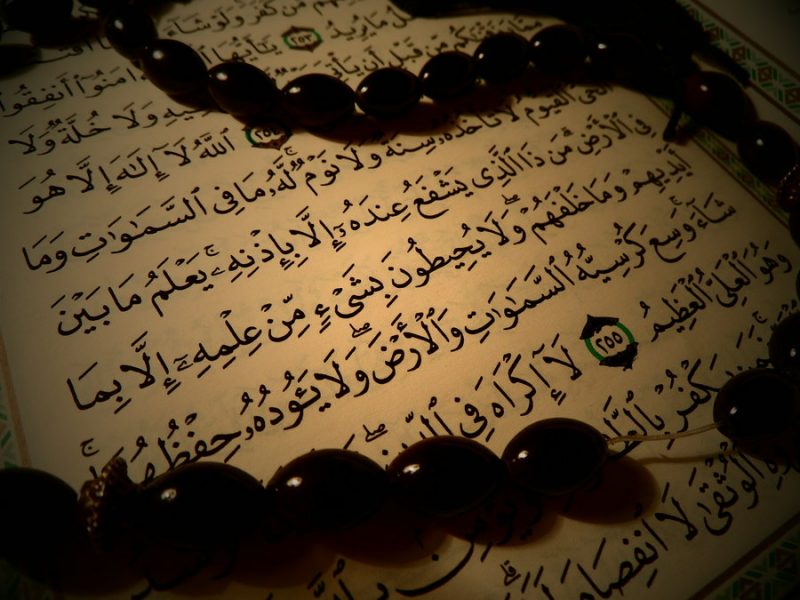 مَّن كَفَرَ وَلَوْ شَآءَ
مَا يُرِيدُ ٢٥٣ يَٰٓأَيُّهَا ءَامَنُوٓا۟ أَنفِقُوا۟
مِّن قَبْلِ أَن يَأْتِىَ فِيهِ وَلَا خُلَّةٌ وَلَا
٢٥٤ ٱللَّهُ لَآ إِلَٰهَ إِلَّا هُوَ
ٱلْحَىُّ ٱلْقَيُّومُ لَا تَأْخُذُهُۥ سِنَةٌ وَلَا نَوْمٌ لَّهُۥ مَا فِى ٱلسَّمَٰوَٰتِ وَمَا
فِى ٱلْأَرْضِ مَن ذَا ٱلَّذِى يَشْفَعُ عِندَهُۥٓ إِلَّا بِإِذْنِهِۦ يَعْلَمُ مَا بَيْنَ
أَيْدِيهِمْ وَمَا خَلْفَهُمْ وَلَا يُحِيطُونَ بِشَىْءٍ مِّنْ عِلْمِهِۦٓ إِلَّا بِمَا
شَآءَ وَسِعَ كُرْسِيُّهُ ٱلسَّمَٰوَٰتِ وَٱلْأَرْضَ وَلَا يَـُٔودُهُۥ حِفْظُهُمَا
وَهُوَ ٱلْعَلِىُّ ٱلْعَظِيمُ ٢٥٥ لَآ إِكْرَاهَ فِى ٱلدِّينِ
يَكْفُرْ
ٱلْوُثْقَىٰ لَا ٱنفِصَامَ